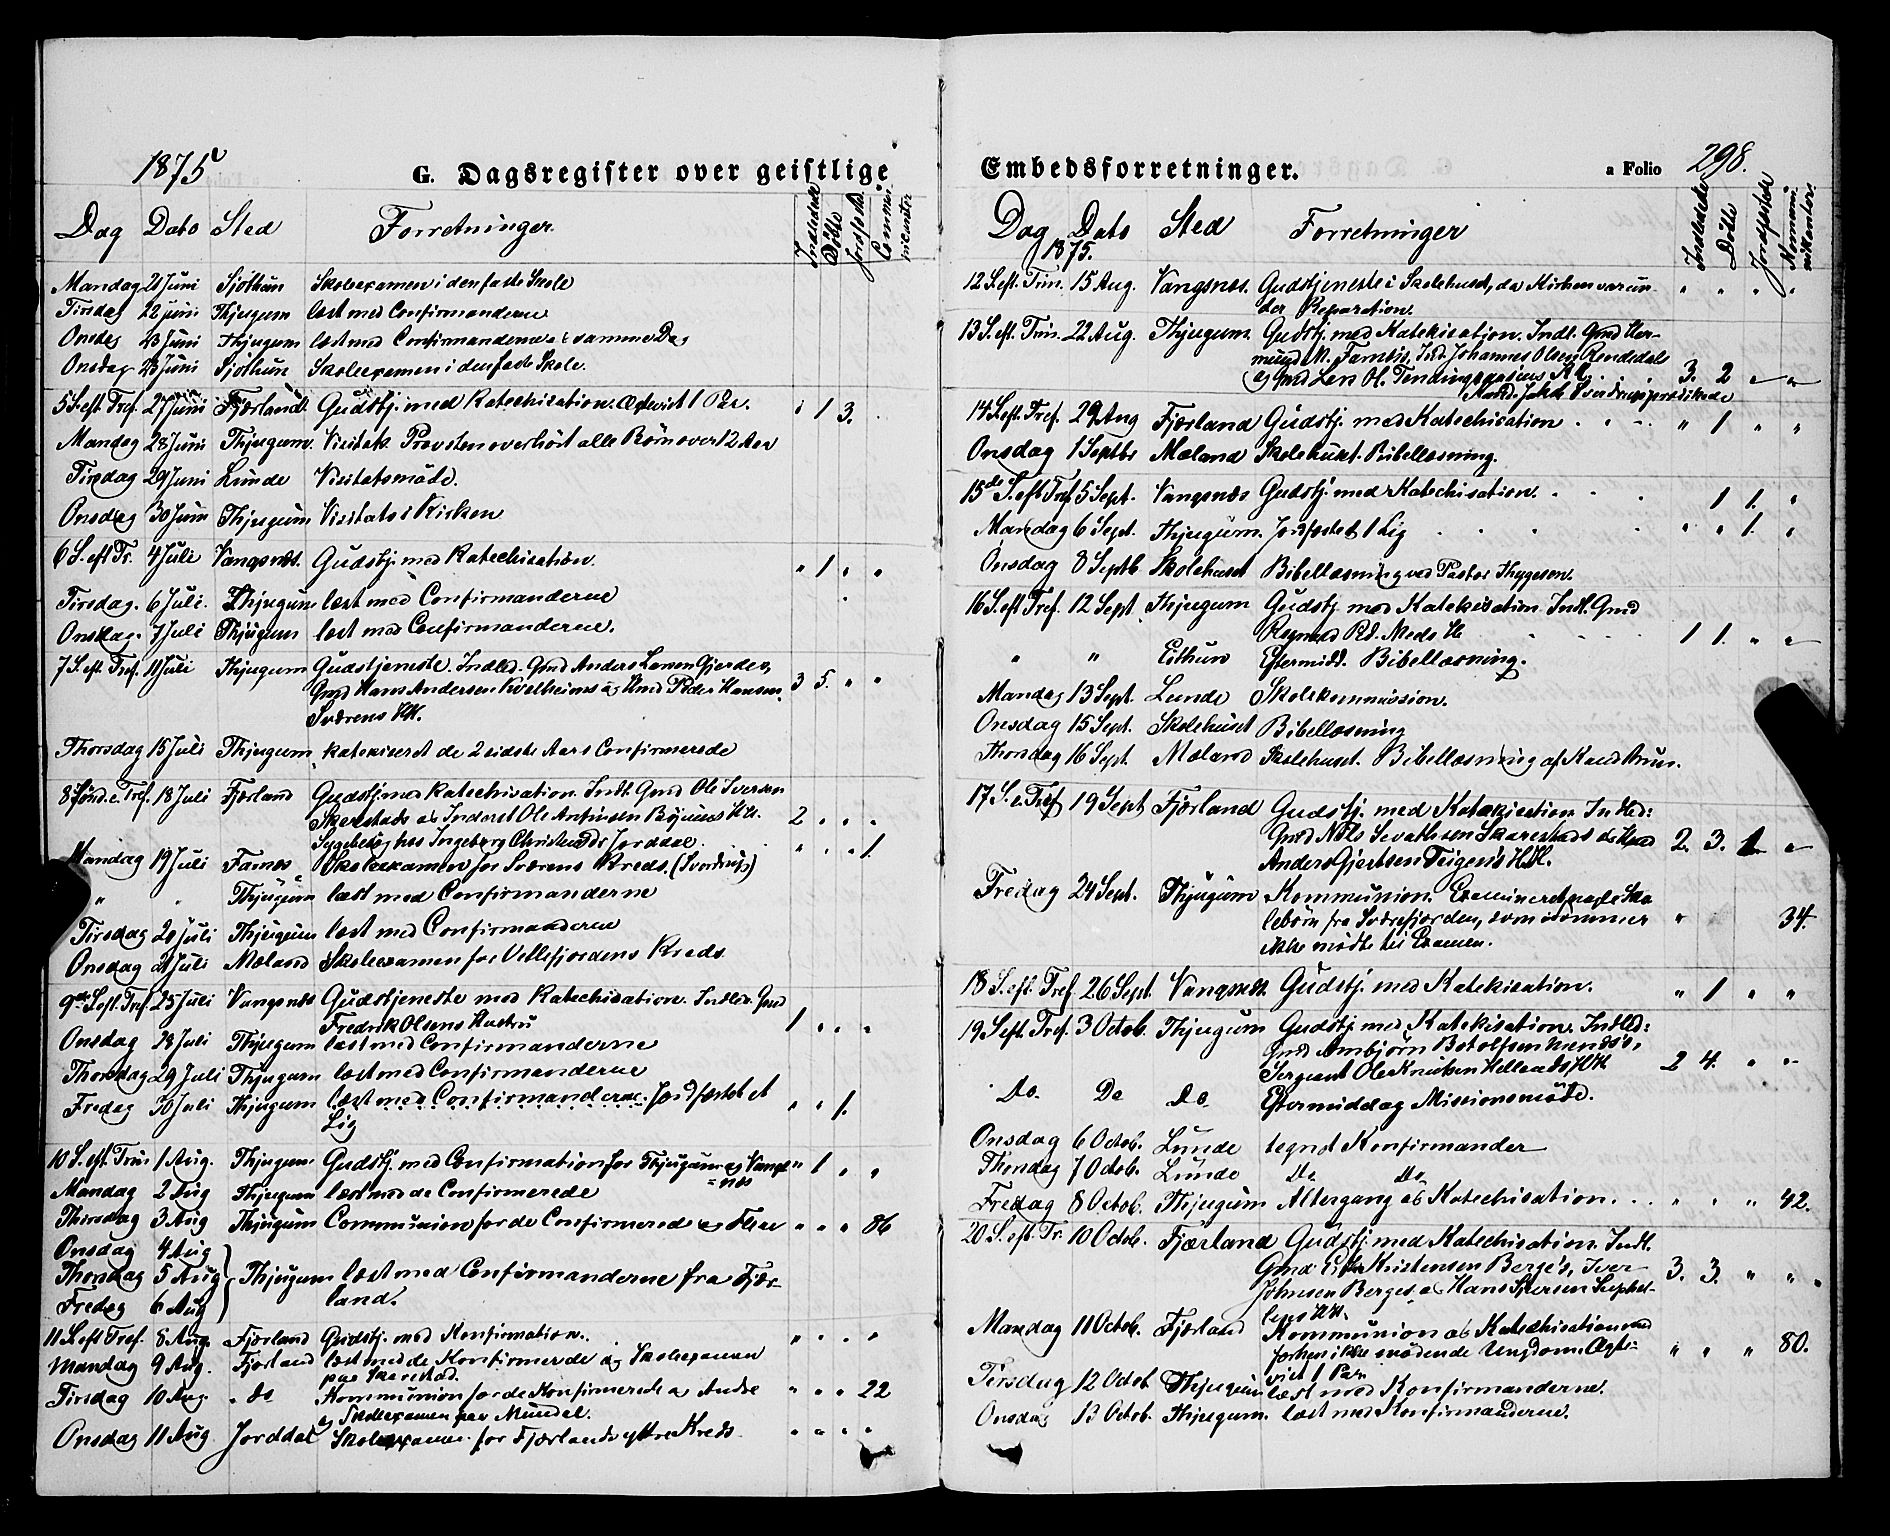 1875
G. Dagsregister over geistlige
Dag Dato Sted Forretninger. Indledede Döbte Jordfæstede Communicanter
Mandag 21 Juni Sjöthun Skoleexamen i den faste Skole
Tirsdag 22 juni Thjugum læst med Confirmanderne
Onsdag 23 Juni Thjugum læst med Confirmanderne samme Dag
Onsdag 23 Juni Sjöthun Skoleexamen i den faste Skole.
5 S. eft. Tref. 27 Juni Fjærland. Gudstj. med Katechisation. Ægteviet 1 Par. " 1 3.
Mandag 28 Juni Thjugum. Visitats. Provsten overhört alle Börn over 12 Aar
Tirsdag 29 Juni Lunde Visitatsmöde.
Onsdag 30 Juni Thjugum Visitats i Kirken
6 S. eft Tr. 4 Juli Vangsnæs. Gudstj. med Katechisation. " 1 " "
Tirsdag. 6 Juli. Thjugum læst med Confirmanderne
Onsdag. 7 Juli Thjugum læst med Confirmanderne.
7 S. eft. Tref. 11 Juli Thjugum Gudstjeneste. Indled. Gmd Anders Larsen Gjerdes,
Gmd Hans Andersen Kvelheims og Kmd Peder Hansen 3 5. " "
Sværens KK.
Thorsdag 15 Juli Thjugum, katekiseret de 2 sidste Aars Confirmerede
8 Sönd. e. Tref. 18 Juli Fjærland Gudstj. med Katechisation. Indl. Gmd Ole Iversen
Skarestads og Inderst Ole Antinsen Böjums KK. 2 " " "
Sygebesög hos Ingeborg Christensdr Jorddal. " " " 1.
Mandag 19 Juli Farnes Skoleexamen for Sværens Kreds. (Sverdrup)
" " Thjugum læst med Confirmanderne
Tirsdag 20 Juli Thjugum læst med Confirmanderne
Onsdag 21 Juli Mæland Skoleexamen for Vetlefjordens Kreds.
9de S. eft. Tref. 25 Juli Vangsnæs Gudstjeneste med Katechisation. Indled. Gmd
Fredrik Olsens Hustru 1 " " "
Onsdag 28 Juli Thjugum læst med Confirmanderne
Thorsdag 29 Juli Thjugum læst med Confirmanderne
Fredag 30 Juli Thjugum læst med Confirmanderne. Jordfæstet et " " 1.
Lig
10 S. eft. Trin 1 Aug. Thjugum Gudstj. med Confirmation for Thjugum og Vangs= " 1 " "
=næs
Mandag 2 Aug Thjugum læst med de Confirmerede
Tirsdag 3 Aug Thjugum Communion for de Confirmerede og Flere " " " 86
Onsdag 4 Aug
Thorsdag 5 Aug Thjugum læst med Confirmanderne fra Fjær-
Fredag 6 Aug land.
11 S. eft Tref. 8 Aug. Fjærland Gudstj. med Konfirmation. " " " "
Mandag 9 Aug. Fjærland læst med de Konfirmerede og Skoleexamen
paa Skarestad.
Tirsdag 10 Aug. " do Kommunion for de Konfirmerede og Andre " " " 22
og Skoleexamen paa Mundal.
Onsdag 11 Aug. Jorddal Skoleexamen for Fjærlands ytre Kreds. " " " "
Embedsforretninger.
a Folio 298.
Dag Dato Sted Forretninger Indledede Döbte Jordfæstede Kommunikantere
1875.
12 S. eft. Trin. 15 Aug. Vangsnæs. Gudstjeneste i Skolehuset, da Kirken var un- " " " "
der Reparation.
13 S. eft. Trin. 22 Aug. Thjugum. Gudstj. med Katekisation. Indl. Gmd Her-
mund M. Farnæs, Ind. Johannes Olsen Rendedals
og Gmd Lars Ol. Tendings KK. 3. 2 " "
Kand. Jakob Sverdrup prædikede
14 S. eft. Tref. 29 Aug Fjærland Gudstj. med Katechisation " 1 " "
Onsdag 1 Septbr Mæland Skolehuset. Bibellæsning.
15de S. eft Tref 5 Sept. Vangsnæs Gudstj. med Katechisation. 1 1. "
Mandag 6 Sept. Thjugum. Jordfæstet 1 Lig " " 1. "
Onsdag 8 Septb. Skolehuset Bibellæsning ved Pastor Thygeson.
16 S. eft Tref. 12 Sept. Thjugum Gudstj. med Katekisation. Indl. Gmd
1 1. " "
" " Esthun Eftermidd. Bibellæsning.
Mandag 13 Sept. Lunde Skolekommission.
Onsdag 15 Sept. Skolehuset Bibellæsning
Thorsdag 16 Sept. Mæland Skolehuset. Bibellæsning af Kand. Brun.
17 S. e. Tref 19 Sept Fjærland Gudstj. med Katekisation Indled:
Gmd Nils Sevathsen Skarestads og Kmd 2. 3. 1. "
Anders Gjertsen Teigens KK.
Fredag 24 Sept. Thjugum Kommunion. Examineret nogle Sko
lebörn fra Sværefjorden, som isommer " 34.
ikke mödte til Examen.
18 S. eft. Tref. 26 Sept. Vangsnæs. Gudstj. med Katekisation. " 1 " "
19 S eft. Tref. 3 Octob. Thjugum Gudstj. med Katekisation. Indled:
Gmd Ambjörn Botolfsen Menes's,
Sergeant Ole Knutsen Hellands KK 2 4. " "
Do. Do Do. Eftermiddag Missionsmöde.
Onsdag 6 Octob. Lunde tegnet Konfirmander
Thorsdag 7 Octob. Lunde Do Do
Fredag 8 Octob. Thjugum Altergang og Katechisation. " " " 42.
20 S. eft. Tr. 10 Octob. Fjærland Gudstj. med Katechisation. Indl.
Gmd Erik Kristensen Berge's, Iver
Johnsen Berges, og Hans 3. 3. " "
lens KK.
Mandag 11 Octob. Fjærland Kommunion og Katechisation med
forhen ikke mödende Ungdom. Ægte- " " " 80.
viet 1 Par
Tirsdag 12 Octob. Thjugum læst med Konfirmanderne.
Onsdag 13 Octob. Thjugum. læst med Konfirmanderne.